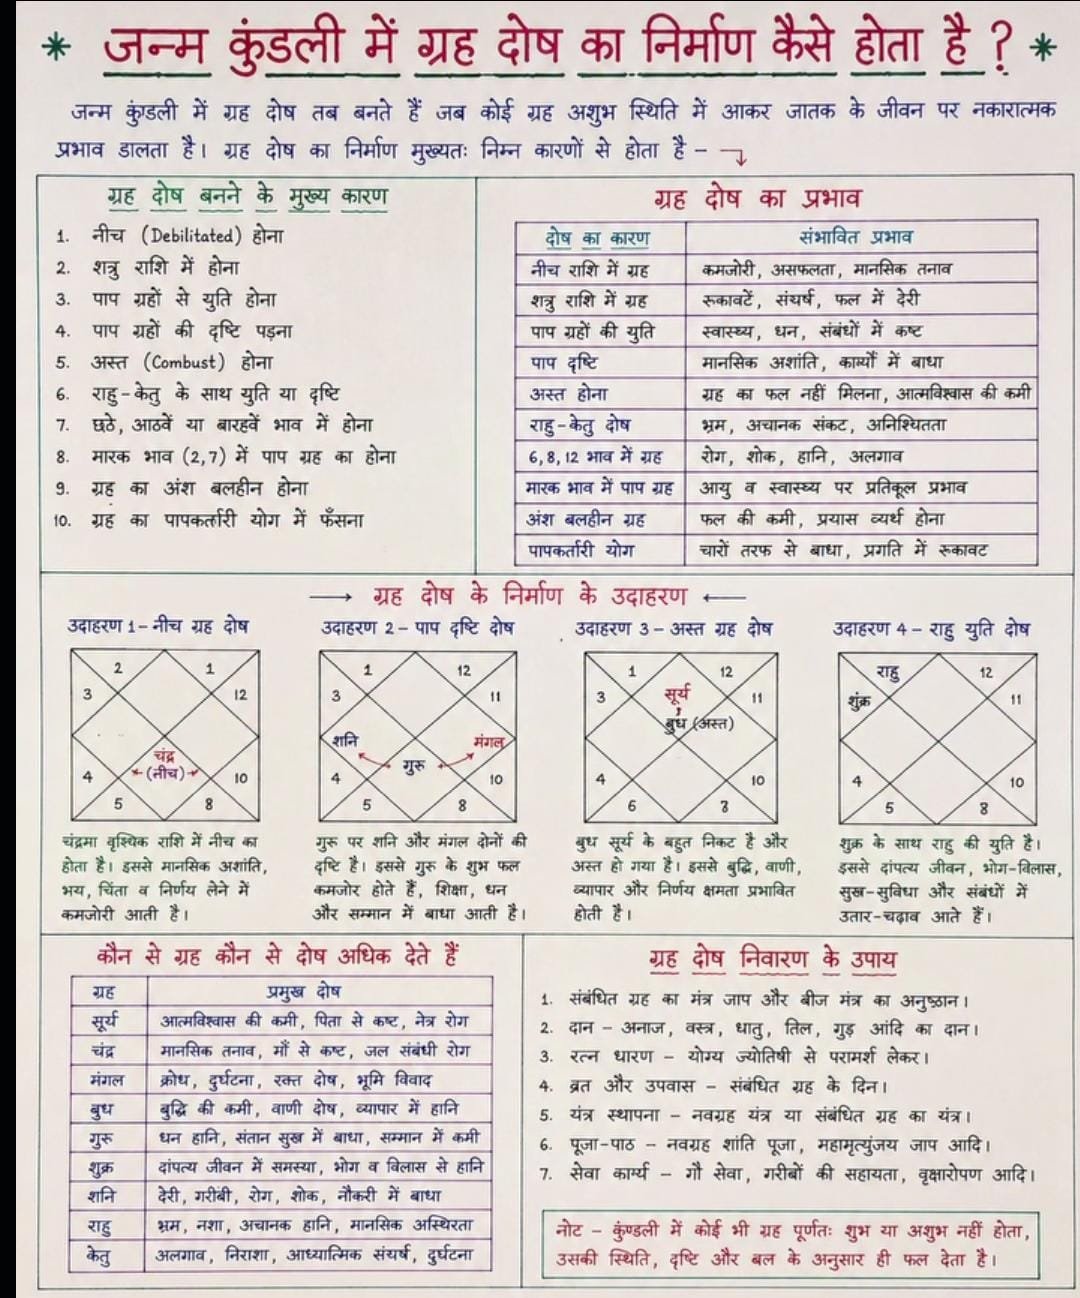 * जन्म कुंडली में ग्रह दोष का निर्माण कैसे होता है ? *
जन्म कुंडली में ग्रह दोष तब बनते हैं जब कोई ग्रह अशुभ स्थिति में आकर जातक के जीवन पर नकारात्मक
प्रभाव डालता है। ग्रह दोष का निर्माण मुख्यतः निम्न कारणों से होता है -
ग्रह दोष बनने के मुख्य कारण
1. नीच (Debilitated) होना
2. शत्रु राशि में होना
3. पाप ग्रहों से युति होना
4. पाप ग्रहों की दृष्टि पड़ना
5. अस्त (Combust) होना
6. राहु-केतु के साथ युति या दृष्टि
7. छठे, आठवें या बारहवें भाव में होना
8. मारक भाव (2,7) में पाप ग्रह का होना
9. ग्रह का अंश बलहीन होना
10. ग्रह का पापकर्तारी योग में फँसना
ग्रह दोष का प्रभाव
दोष का कारण संभावित प्रभाव
नीच राशि में ग्रह कमजोरी, असफलता, मानसिक तनाव
शत्रु राशि में ग्रह रूकावटें, संघर्ष, फल में देरी
पाप ग्रहों की युति स्वास्थ्य, धन, संबंधों में कष्ट
पाप दृष्टि मानसिक अशांति, कार्यों में बाधा
अस्त होना ग्रह का फल नहीं मिलना, आत्मविश्वास की कमी
राहु-केतु दोष भ्रम, अचानक संकट, अनिश्चितता
6,8,12 भाव में ग्रह रोग, शोक, हानि, अलगाव
मारक भाव में पाप ग्रह आयु व स्वास्थ्य पर प्रतिकूल प्रभाव
अंश बलहीन ग्रह फल की कमी, प्रयास व्यर्थ होना
पापकर्तारी योग चारों तरफ से बाधा, प्रगति में रूकावट
→ ग्रह दोष के निर्माण के उदाहरण ←
उदाहरण 1- नीच ग्रह दोष
2 1
3 12
चंद्र
(नीच)
4 10
5 8
चंद्रमा वृश्चिक राशि में नीच का
होता है। इससे मानसिक अशांति,
भय, चिंता व निर्णय लेने में
कमजोरी आती है।
उदाहरण 2- पाप दृष्टि दोष
1 12
3 11
शनि मंगल
गुरू
4 10
5 8
गुरू पर शनि और मंगल दोनों की
दृष्टि है। इससे गुरू के शुभ फल
कमजोर होते हैं, शिक्षा, धन
और सम्मान में बाधा आती है।
उदाहरण 3- अस्त ग्रह दोष
1 12
3 सूर्य 11
बुध (अस्त)
4 10
6
बुध सूर्य के बहुत निकट है और
अस्त हो गया है। इससे बुद्धि, वाणी,
व्यापार और निर्णय क्षमता प्रभावित
होती है।
उदाहरण 4- राहु युति दोष
राहु 12
शुक्र 11
4 10
5 8
शुक्र के साथ राहु की युति है।
इससे दांपत्य जीवन, भोग-विलास,
सुख-सुविधा और संबंधों में
उतार-चढ़ाव आते हैं।
कौन से ग्रह कौन से दोष अधिक देते हैं
ग्रह प्रमुख दोष
सूर्य आत्मविश्वास की कमी, पिता से कष्ट, नेत्र रोग
चंद्र मानसिक तनाव, माँ से कष्ट, जल संबंधी रोग
मंगल क्रोध, दुर्घटना, रक्त दोष, भूमि विवाद
बुध बुद्धि की कमी, वाणी दोष, व्यापार में हानि
गुरू धन हानि, संतान सुख में बाधा, सम्मान में कमी
शुक्र दांपत्य जीवन में समस्या, भोग व विलास से हानि
शनि देरी, गरीबी, रोग, शोक, नौकरी में बाधा
राहु भ्रम, नशा, अचानक हानि, मानसिक अस्थिरता
केतु अलगाव, निराशा, आध्यात्मिक संघर्ष, दुर्घटना
ग्रह दोष निवारण के उपाय
1. संबंधित ग्रह का मंत्र जाप और बीज मंत्र का अनुष्ठान।
2. दान - अनाज, वस्त्र, धातु, तिल, गुड़ आदि का दान।
3. रत्न धारण - योग्य ज्योतिषी से परामर्श लेकर।
4. व्रत और उपवास - संबंधित ग्रह के दिन।
5. यंत्र स्थापना - नवग्रह यंत्र या संबंधित ग्रह का यंत्र।
6. पूजा-पाठ - नवग्रह शांति पूजा, महामृत्युंजय जाप आदि।
7. सेवा कार्य - गौ सेवा, गरीबों की सहायता, वृक्षारोपण आदि।
नोट - कुंण्डली में कोई भी ग्रह पूर्णतः शुभ या अशुभ नहीं होता,
उसकी स्थिति, दृष्टि और बल के अनुसार ही फल देता है।